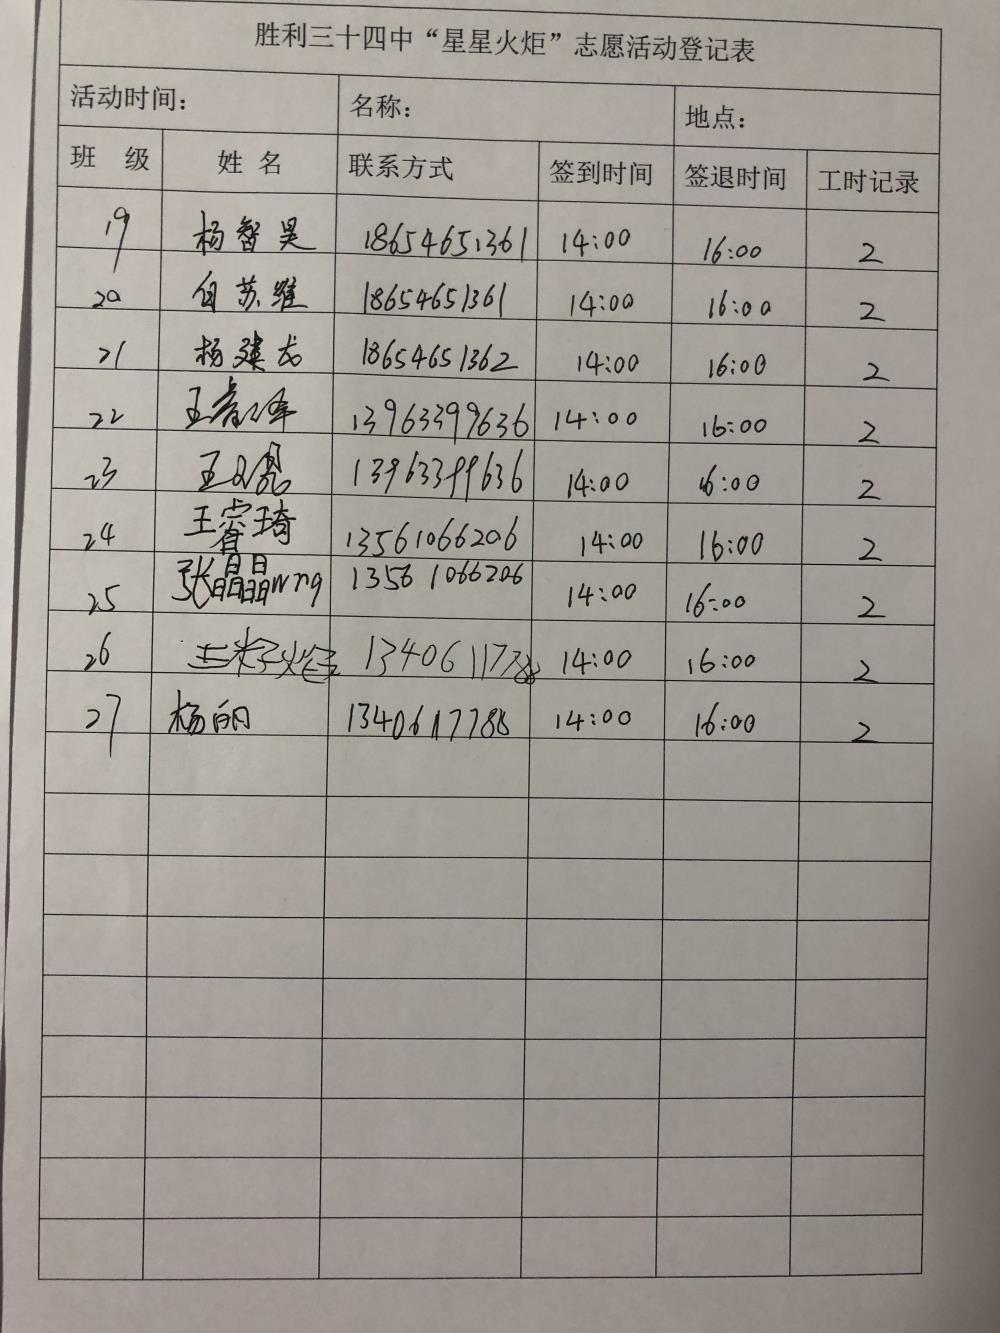 胜利三十四中“星星火炬”志愿活动登记表
活动时间： 名称： 地点：
班 级 姓 名 联系方式 签到时间 签退时间 工时记录
19 杨智昊 18654651361 14:00 16:00 2
20 白苏维 18654651361 14:00 16:00 2
21 杨建龙 18654651362 14:00 16:00 2
22 王 13963399636 14:00 16:00 2
23 王 13963399636 14:00 16:00 2
24 王睿琦 13561066206 14:00 16:00 2
25 张晶晶 13561066206 14:00 16:00 2
26 14:00 16:00 2
27 杨丽 13406117788 14:00 16:00 2